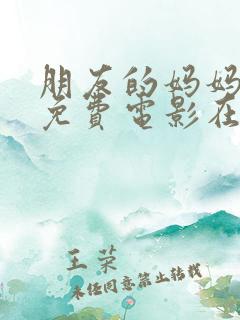 朋友的妈妈
免費电影在
王荣
未经同意禁止转载